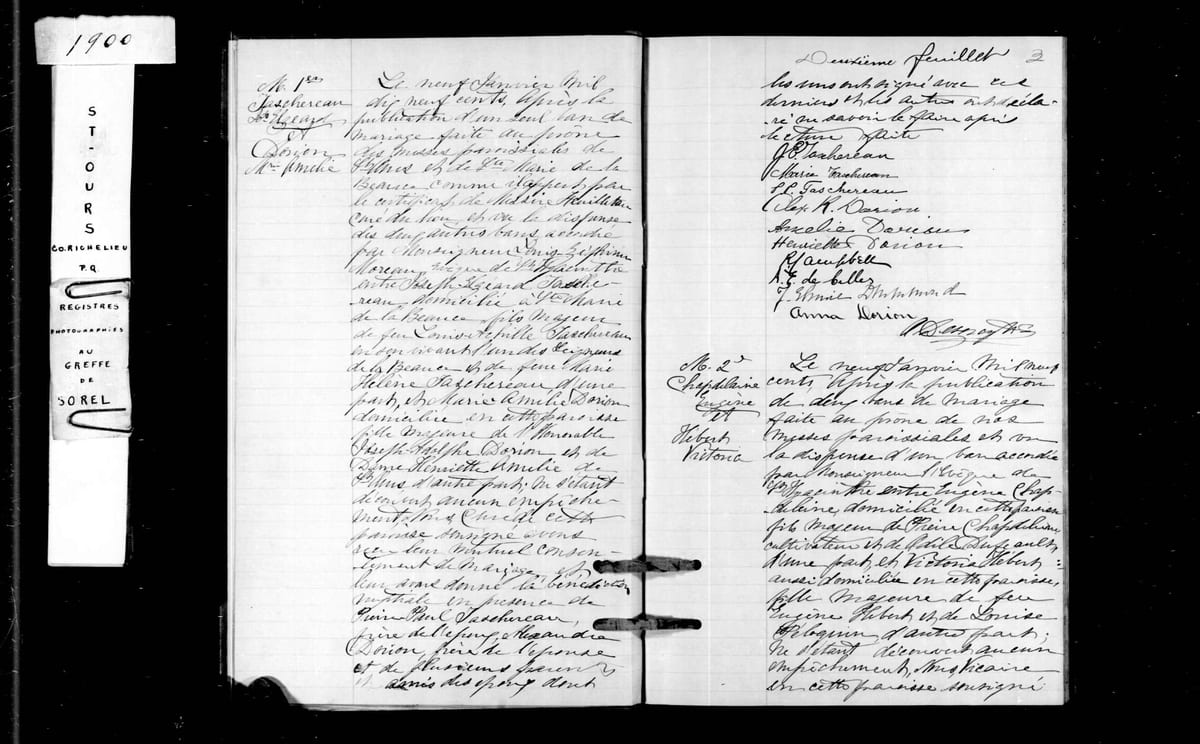 1900
ST-OURS
CO. RICHELIEU
P.Q.
REGISTRES
PHOTOGRAPHIÉS
AU
GREFFE
DE
SOREL
M. 1er
Taschereau
Jos. Elzéard
Et
Dorion
Mie Amélie
Le neuf Janvier Mil
dix neuf cents, après la
publication d'un seul ban de
mariage faite au prone
des messes paroissiales de
St Ours et de Ste Marie de la
Beauce comme il appert par
le certificat de Messire
curé du lieu, et vu la dispense
des deux autres bans accordée
par Monseigneur Louis Zéphirin
Moreau, Evêque de St Hyacinthe
entre Joseph Elzéard Tasche-
reau domicilié à Ste Marie
de la Beauce, fils majeur
de feu Louis Achille Taschereau
en son vivant l'un des Seigneurs
de la Beauce et de feue Marie
Hélène Taschereau d'une
part, et Marie Amélie Dorion
domiciliée en cette paroisse
fille majeure de l'Honorable
Joseph Adolphe Dorion et de
Dame Henriette Amélie de
St Ours d'autre part; ne s'étant
découvert aucun empêche-
ment, Nous, Curé de cette
paroisse soussigné avons
reçu leur mutuel consen-
tement de mariage et
leur avons donné la bénédiction
nuptiale en présence de
Pierre Paul Taschereau,
frère de l'époux, Alexandre
Dorion, frère de l'épouse
et de plusieurs parents
et amis des époux dont
Deuxième feuillet 3
les uns ont signé avec ces
derniers et les autres ont décla-
ré ne savoir le faire après
lecture faite
J E Taschereau
Marie Taschereau
Taschereau
Alex R. Dorion
Amélie Dorion
Henriette Dorion
Campbell
A. E. de Belle
Drummond
Anna Dorion
M. 2d
Chapdelaine
Eugène
et
Hébert
Victoria
Le neuf Janvier Mil neuf
cents après la publication
de deux bans de mariage
faite au prone de nos
messes paroissiales et vu
la dispense d'un ban accordée
par Monseigneur l'Evêque de
St Hyacinthe entre Eugène Chap-
delaine, domicilié en cette paroisse
fils majeur de Pierre Chapdelaine
cultivateur et de Odile Dufault,
d'une part, et Victoria Hébert
aussi domiciliée en cette paroisse,
fille majeure de feu
Eugène Hébert et de Louise
Péloquin d'autre part;
ne s'étant découvert aucun
empêchement, Nous, Vicaire
en cette paroisse soussigné